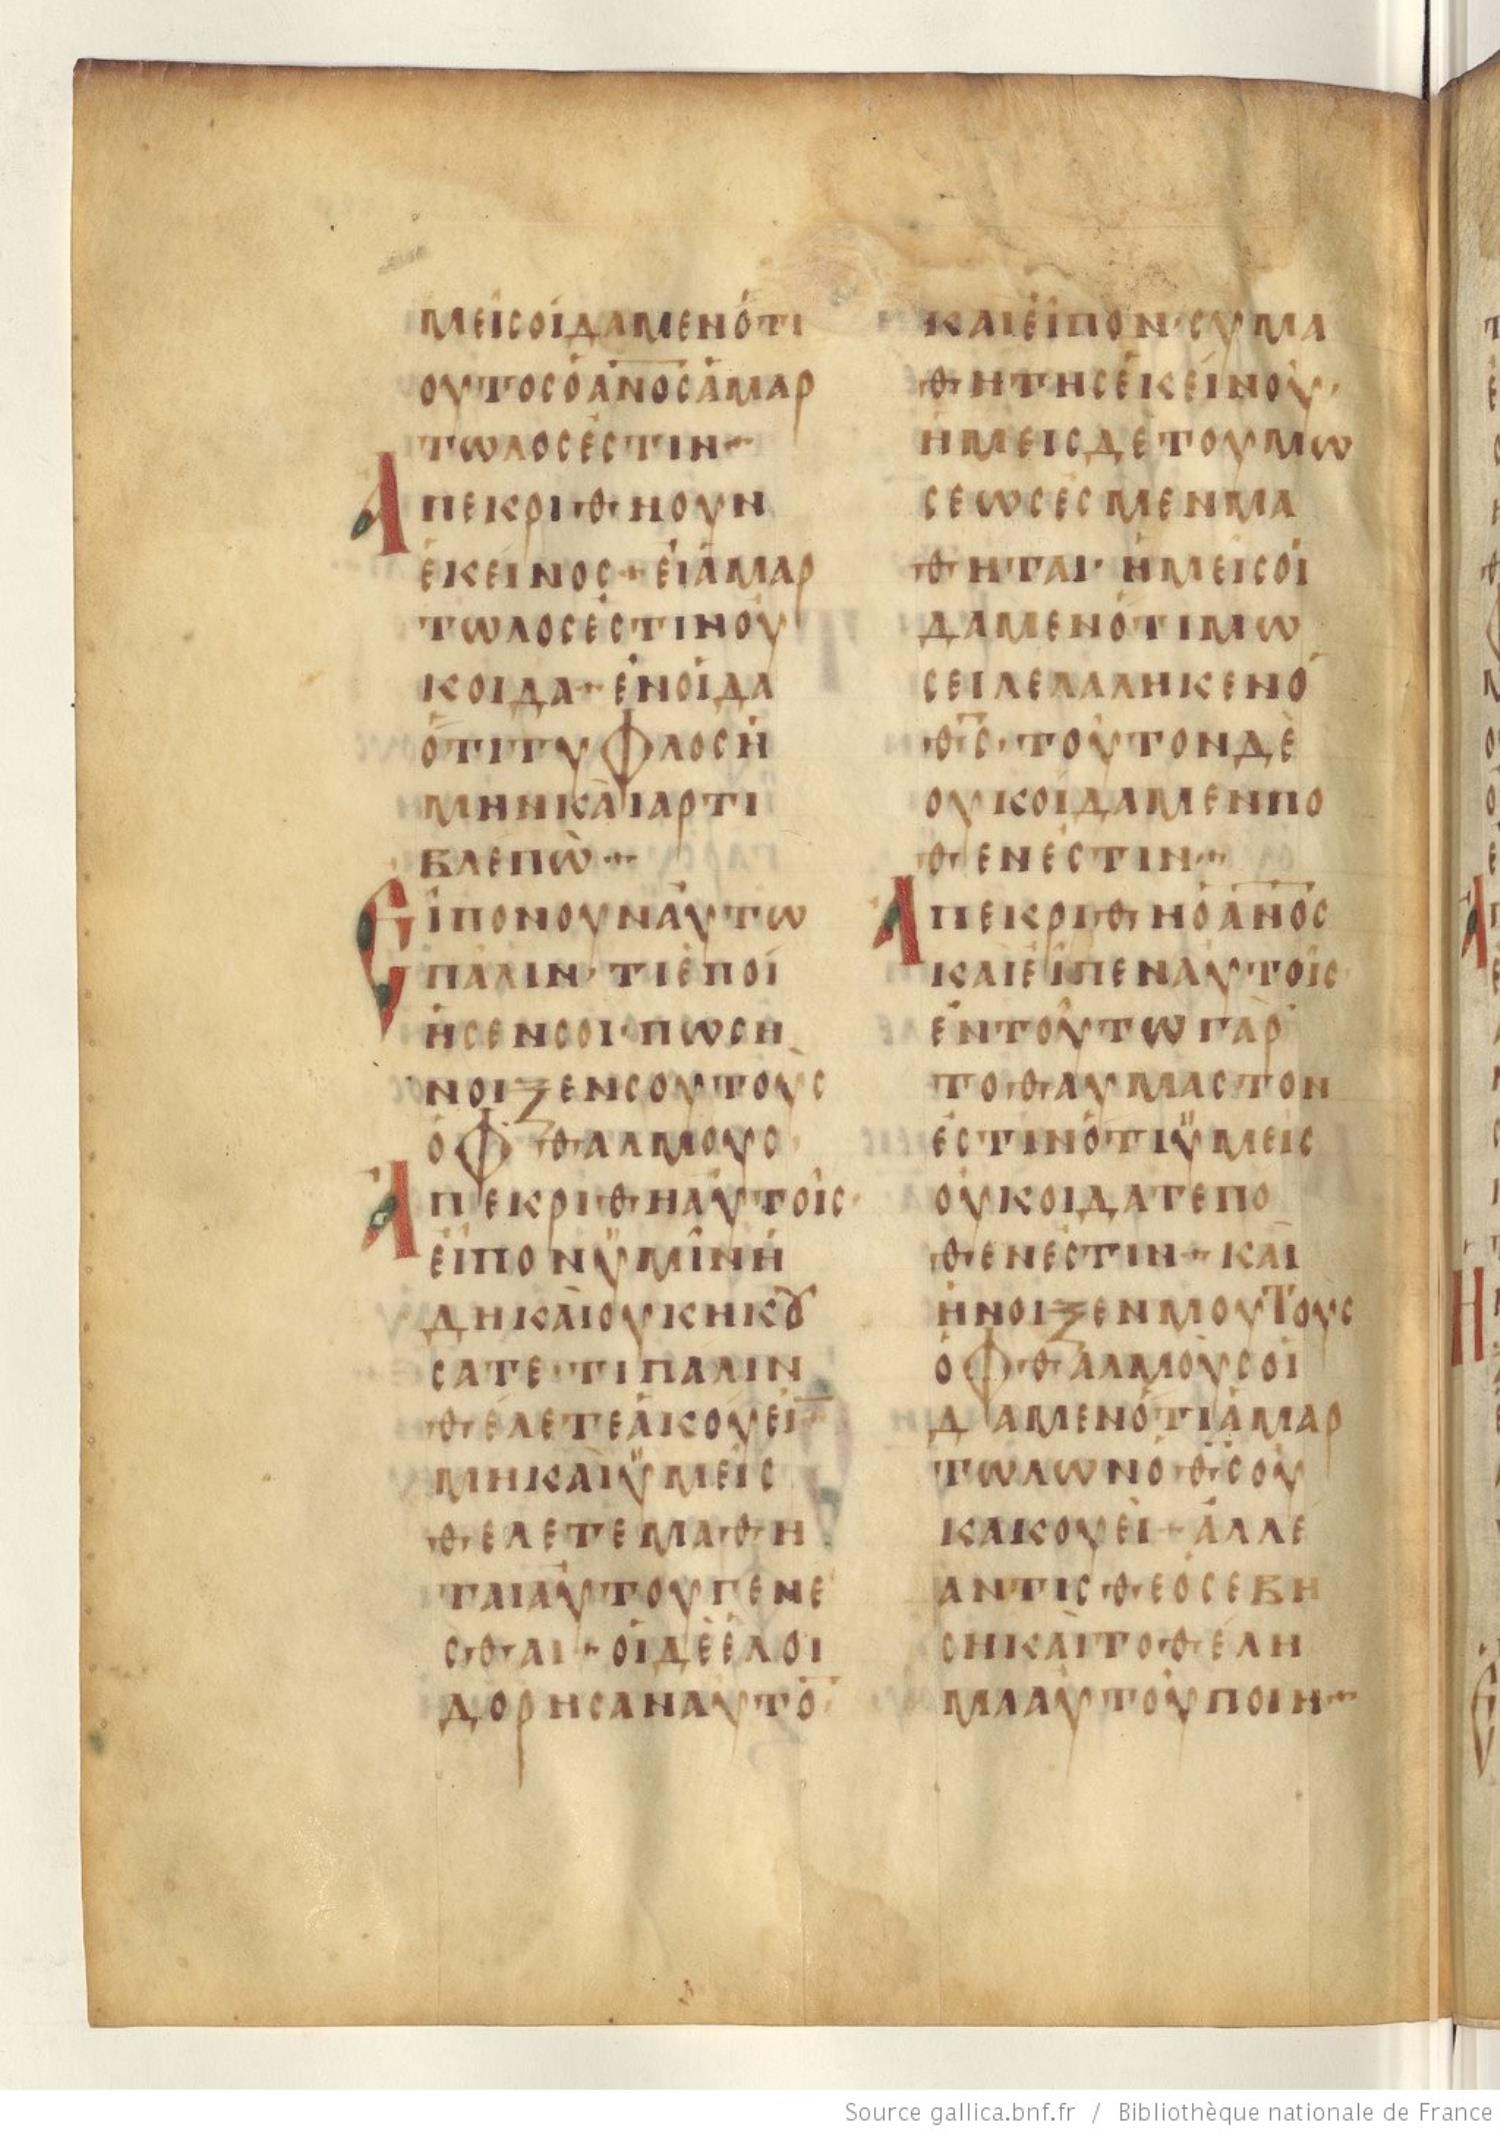 ΜΕΙCΟΙΔΑΜΕΝΟΤΙ
ΟΥΤΟCΟΑΝΟCΑΜΑΡ
ΤΩΛΟCΕCΤΙΝ
ΑΠΕΚΡΙΘΗΟΥΝ
ΕΚΕΙΝΟC ΕΙΑΜΑΡ
ΤΩΛΟCΕCΤΙΝΟΥ
ΚΟΙΔΑ ΕΝΟΙΔΑ
ΟΤΙΤΥΦΛΟCΗ
ΜΗΝΚΑΙΑΡΤΙ
ΒΛΕΠΩ
ΕΙΠΟΝΟΥΝΑΥΤΩ
ΠΑΛΙΝ· ΤΙΕΠΟΙ
ΗCΕΝCΟΙ· ΠΩCΗ
ΝΟΙΞΕΝCΟΥΤΟΥC
ΟΦΘΑΛΜΟΥC·
ΑΠΕΚΡΙΘΗΑΥΤΟΙC·
ΕΙΠΟΝΫΜΙΝΗ
ΔΗΚΑΙΟΥΚΗΚȢ
CΑΤΕ· ΤΙΠΑΛΙΝ
ΘΕΛΕΤΕΑΚΟΥΕΙ̅
ΜΗΚΑΙΫΜΕΙC
ΘΕΛΕΤΕΜΑΘΗ
ΤΑΙΑΥΤΟΥΓΕΝΕ
CΘΑΙ ΟΙΔΕΕΛΟΙ
ΔΟΡΗCΑΝΑΥΤΟ̅
ΚΑΙΕΙΠΟΝ· CΥΜΑ
ΘΗΤΗCΕΚΕΙΝΟΥ·
ΗΜΕΙCΔΕΤΟΥΜΩ
CΕΩCΕCΜΕΝΜΑ
ΘΗΤΑΙ· ΗΜΕΙCΟΙ
ΔΑΜΕΝΟΤΙΜΩ
CΕΙΛΕΛΑΛΗΚΕΝΟ
Θ̅C̅· ΤΟΥΤΟΝΔΕ
ΟΥΚΟΙΔΑΜΕΝΠΟ
ΘΕΝΕCΤΙΝ
ΑΠΕΚΡΙΘΗΟΑΝΟC
ΚΑΙΕΙΠΕΝΑΥΤΟΙC·
ΕΝΤΟΥΤΩΓΑΡ
ΤΟΘΑΥΜΑCΤΟΝ
ΕCΤΙΝΟΤΙΫΜΕΙC
ΟΥΚΟΙΔΑΤΕΠΟ
ΘΕΝΕCΤΙΝ ΚΑΙ
ΗΝΟΙΞΕΝΜΟΥΤΟΥC
ΟΦΘΑΛΜΟΥCΟΙ
ΔΑΜΕΝΟΤΙΑΜΑΡ
ΤΩΛΩΝΟΘ̅C̅ΟΥ
ΚΑΚΟΥΕΙ ΑΛΛΕ
ΑΝΤΙCΘΕΟCΕΒΗ
CΗΚΑΙΤΟΘΕΛΗ
ΜΑΑΥΤΟΥΠΟΙΗ
Source gallica.bnf.fr / Bibliothèque nationale de France